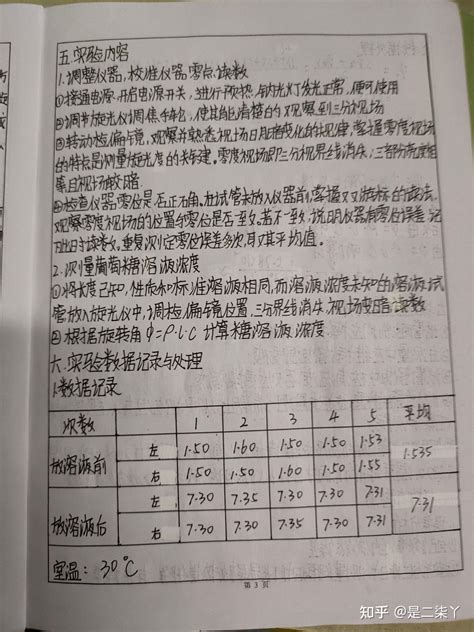 五.实验内容
1.调整仪器,校准仪器零点.读数
①接通电源.开启电源开关,进行预热,钠光灯发光正常,便可使用
②调节旋光仪调焦手轮,使其能清楚的观察到三分视场
③转动检偏镜,观察并熟悉视场明暗变化的规律,掌握零度视场
的特点是测量旋光度的关键.零度视场即三分视界线消失,三部分亮度相
等且视场较暗
④检查仪器零位是否正确.在试管未放入仪器前,掌握双游标的读法,
观察零度视场的位置与零位是否一致.若不一致,说明仪器有零位误差,记
下此时读数.重复测定零位误差多次,取其平均值。
2.测量葡萄糖溶液浓度
①将长度已知,性质和标准溶液相同,而溶液浓度未知的溶液试
管放入旋光仪中,调检偏镜位置,三分界线消失,视场变暗,读数
②根据旋转角Φ=ρ·L·C 计算糖溶液浓度
六.实验数据记录与处理
1.数据记录
次数 1 2 3 4 5 平均
放溶液前 左 1.50 1.60 1.50 1.50 1.53 1.535
右 1.50 1.50 1.60 1.50 1.55
放溶液后 左 7.30 7.35 7.30 7.30 7.31 7.31
右 7.30 7.30 7.35 7.30 7.31
室温: 30℃
第 3 页
知乎 @是二柒丫